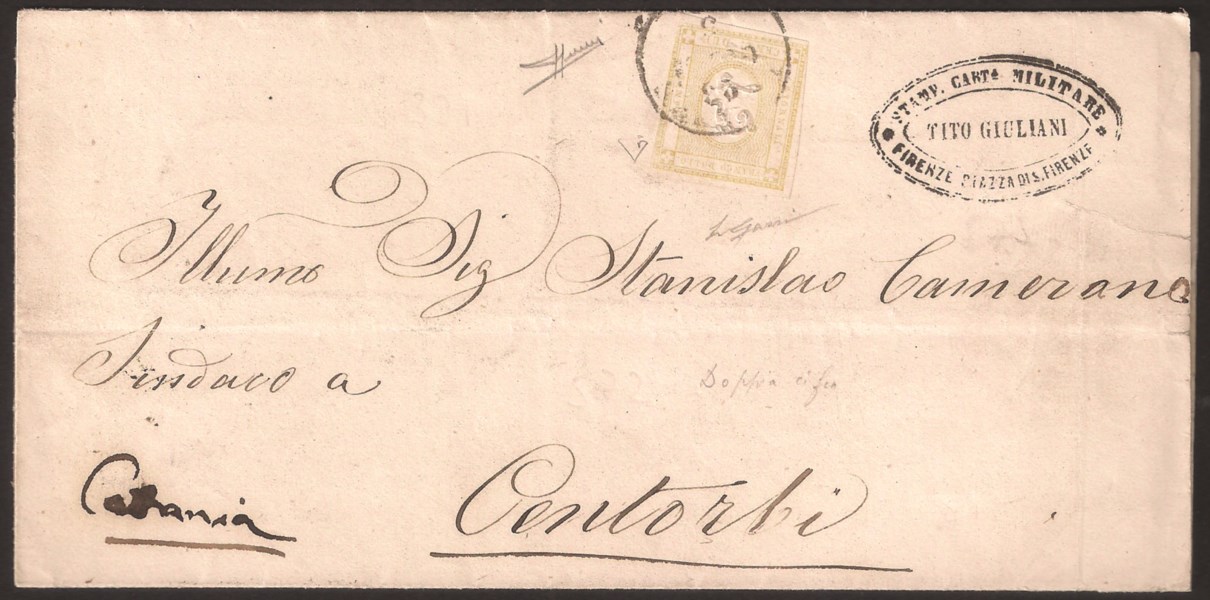 STAMP. CARTa. MILITARE
TITO GIULIANI
FIRENZE PIAZZA DI S. FIRENZE
Illumo Sig Stanislao Camerano
Sindaco a
Doppia cifra
Catania
Centorbi